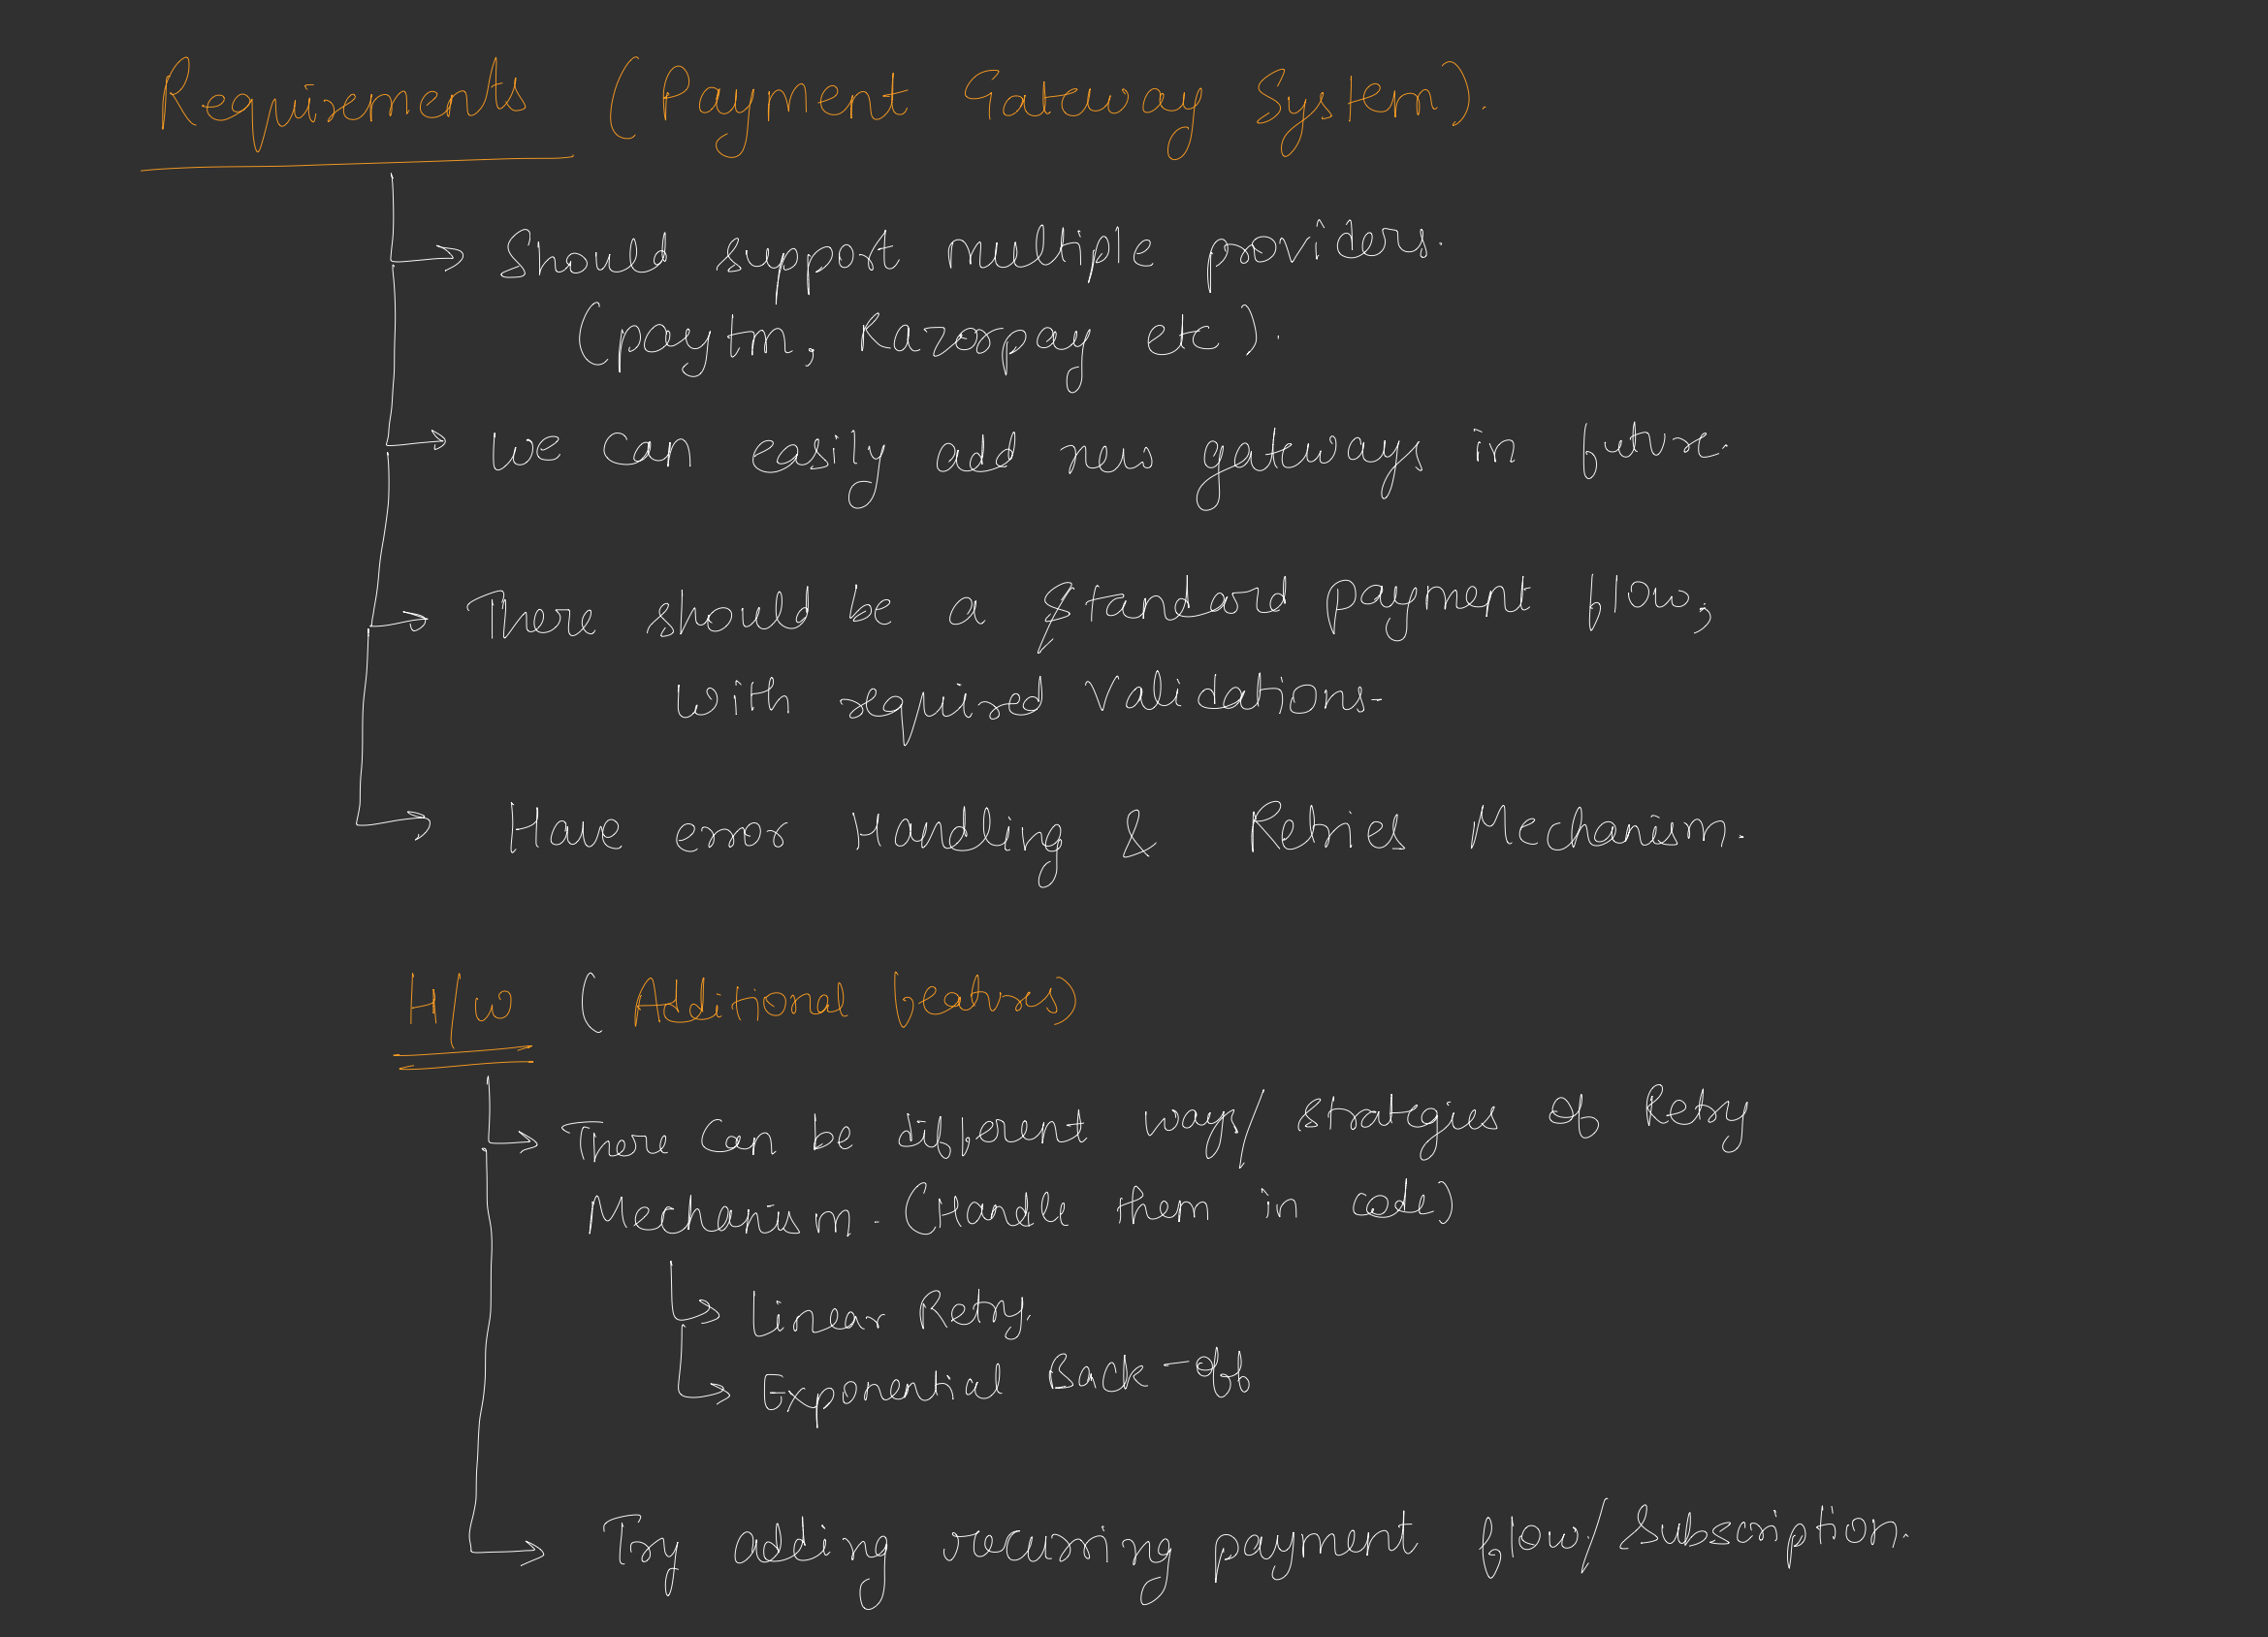 Requirements (Payment Gateway System).
Should support multiple providers.
(paytm, Razorpay etc).
We can easily add new gateways in future.
There should be a standard payment flow,
with required validations.
Have error Handling & Retries Mechanism.
H/w (Additional features)
There can be different ways/strategies of Retry
Mechanism. (Handle them in code)
Linear Retry.
Exponential Back-off
Try adding recurring payment flow/Subscription.